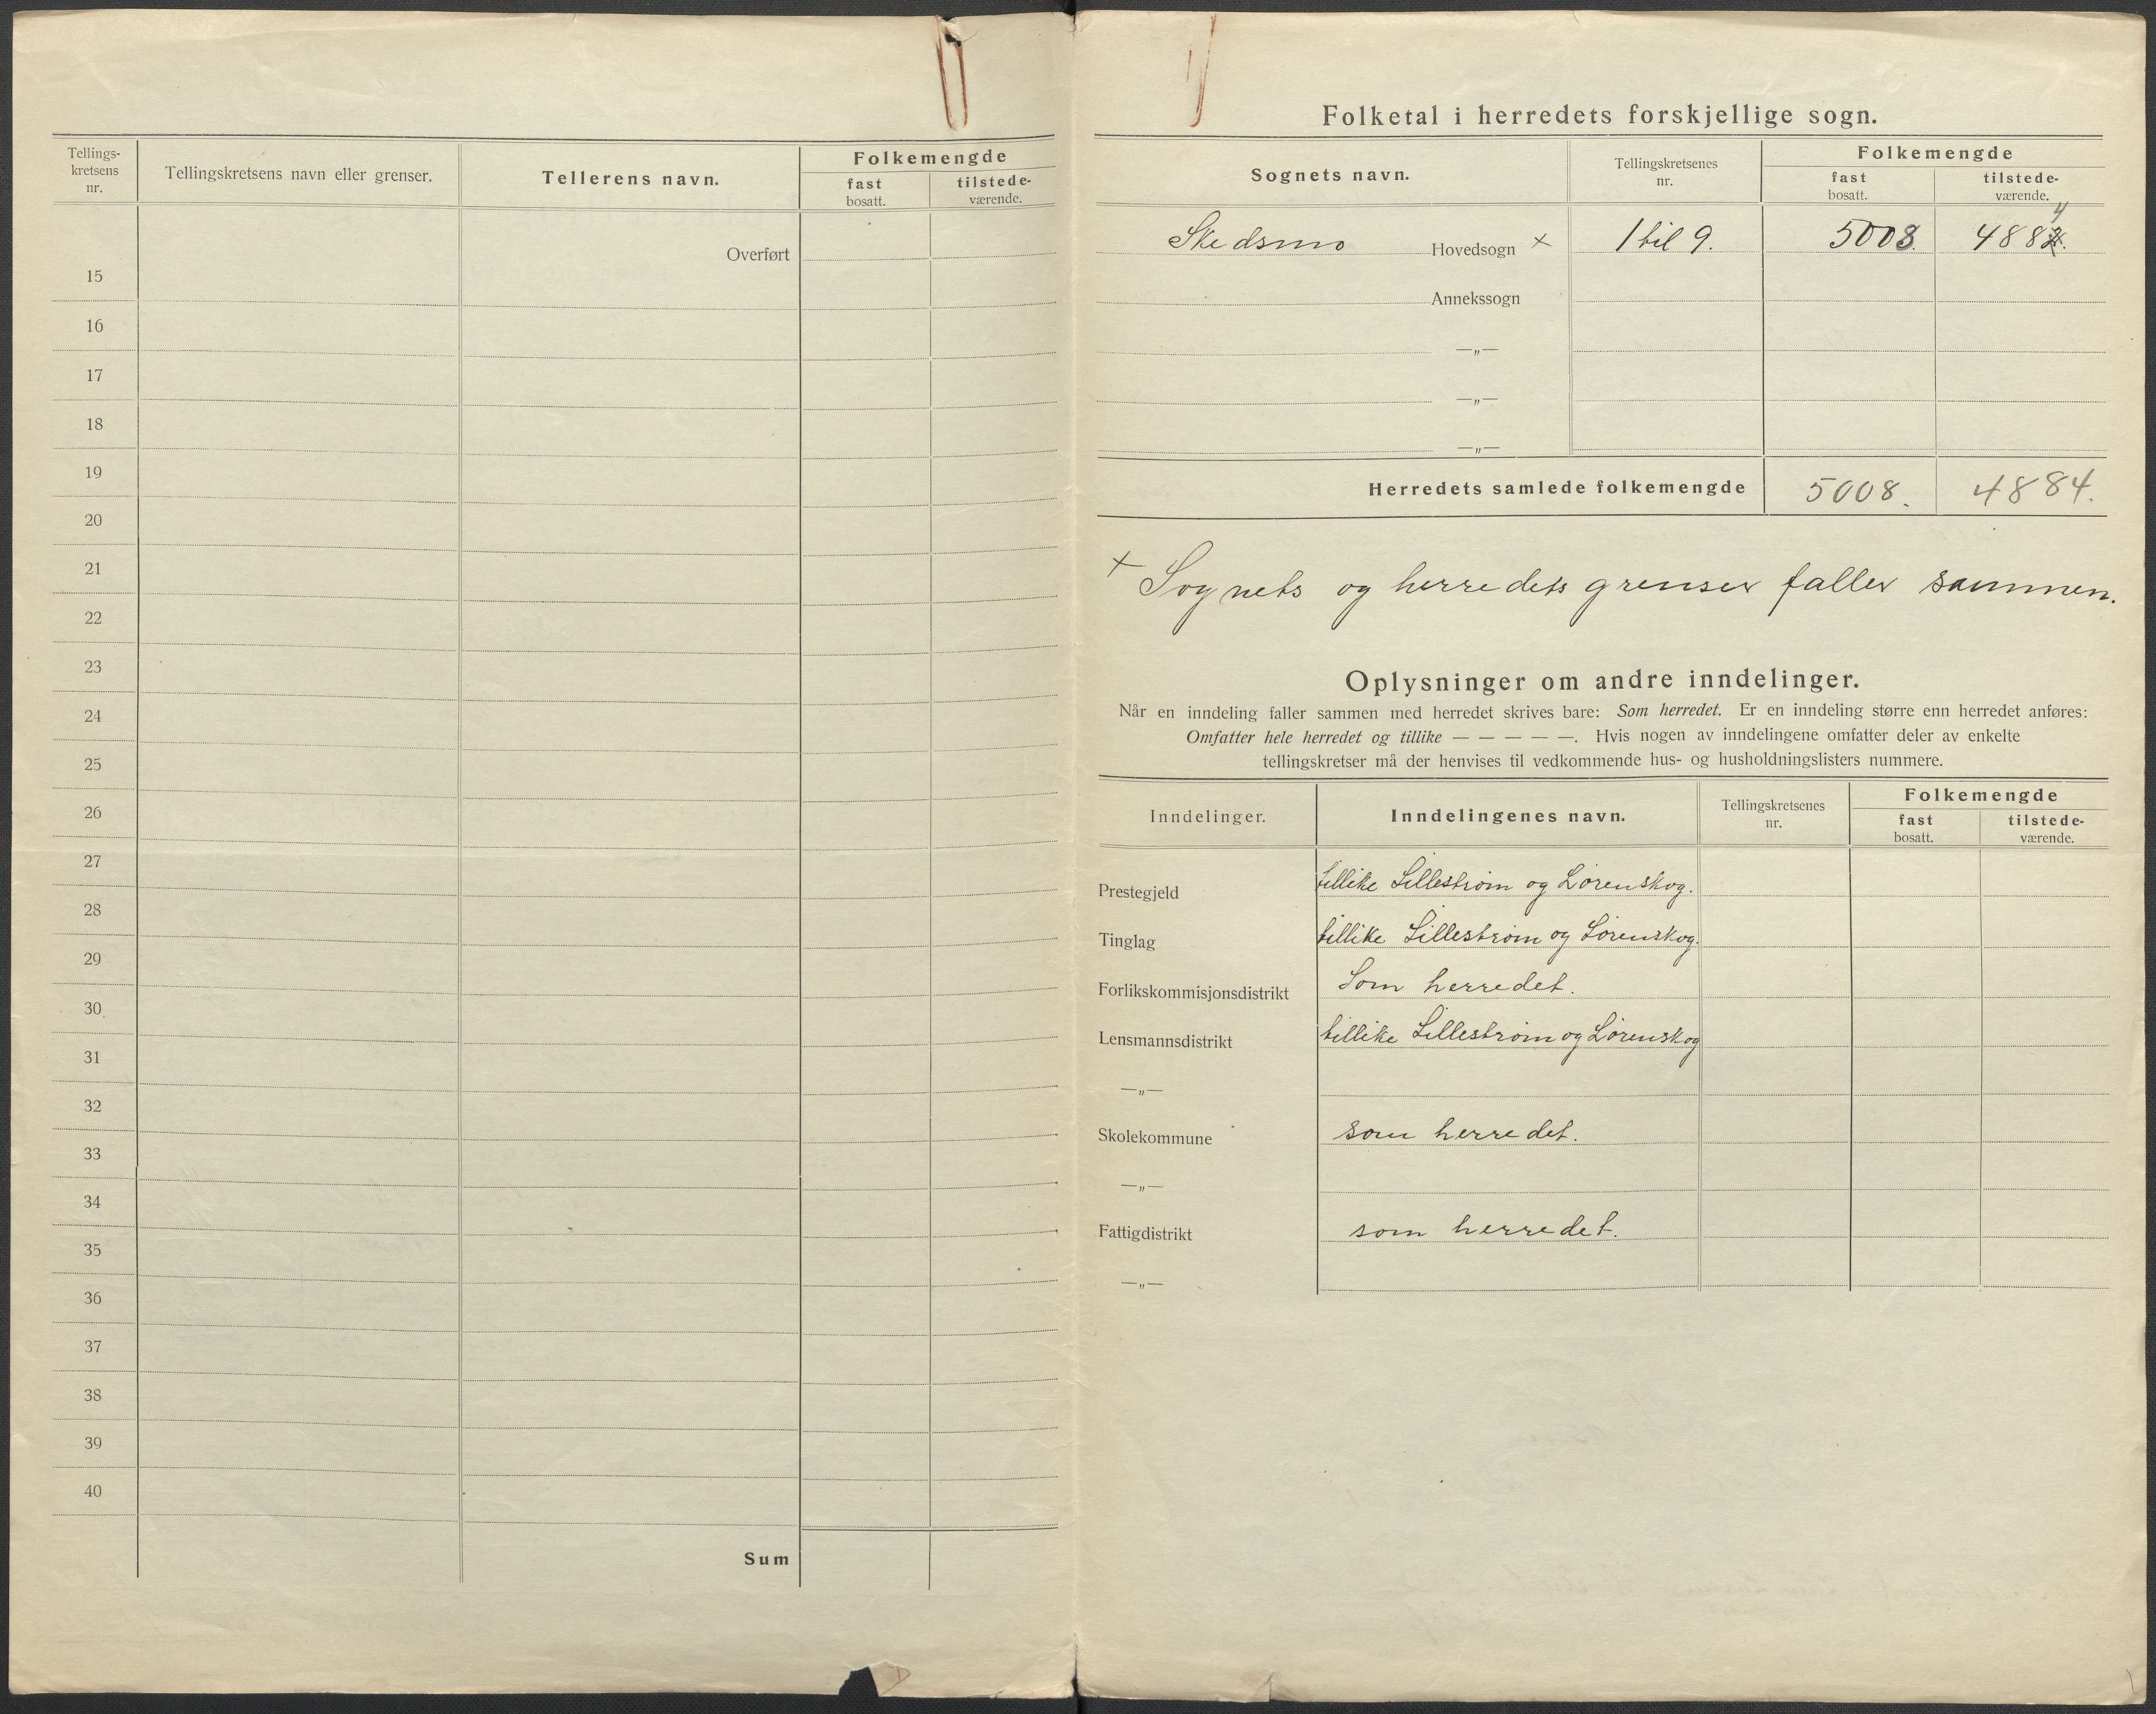 Tellings-
kretsens
nr.
Tellingskretsens navn eller grenser.
Tellerens navn.
Folkemengde
fast
bosatt.
tilstede-
værende.
Overført
15
16
17
18
19
20
21
22
23
24
25
26
27
28
29
30
31
32
33
34
35
36
37
38
39
40
Sum
Folketal i herredets forskjellige sogn.
Sognets navn.
Tellingskretsenes
nr.
Folkemengde
fast
bosatt.
tilstede-
værende.
4
Skedsmo Hovedsogn × 1 til 9. 5008. 488
Annekssogn
—„—
—„—
—„—
Herredets samlede folkemengde 5008. 4884.
× Sognets og herredets grenser faller sammen.
Oplysninger om andre inndelinger.
Når en inndeling faller sammen med herredet skrives bare: Som herredet. Er en inndeling større enn herredet anføres:
Omfatter hele herredet og tillike — — — — —. Hvis nogen av inndelingene omfatter deler av enkelte
tellingskretser må der henvises til vedkommende hus- og husholdningslisters nummere.
Inndelinger.
Inndelingenes navn.
Tellingskretsenes
nr.
Folkemengde
fast
bosatt.
tilstede-
værende.
Prestegjeld tillike Lillestrøm og Lørenskog.
Tinglag tillike Lillestrøm og Lørenskog.
Forlikskommisjonsdistrikt Som herredet.
Lensmannsdistrikt tillike Lillestrøm og Lørenskog
—„—
Skolekommune som herredet.
—„—
Fattigdistrikt som herredet.
—„—